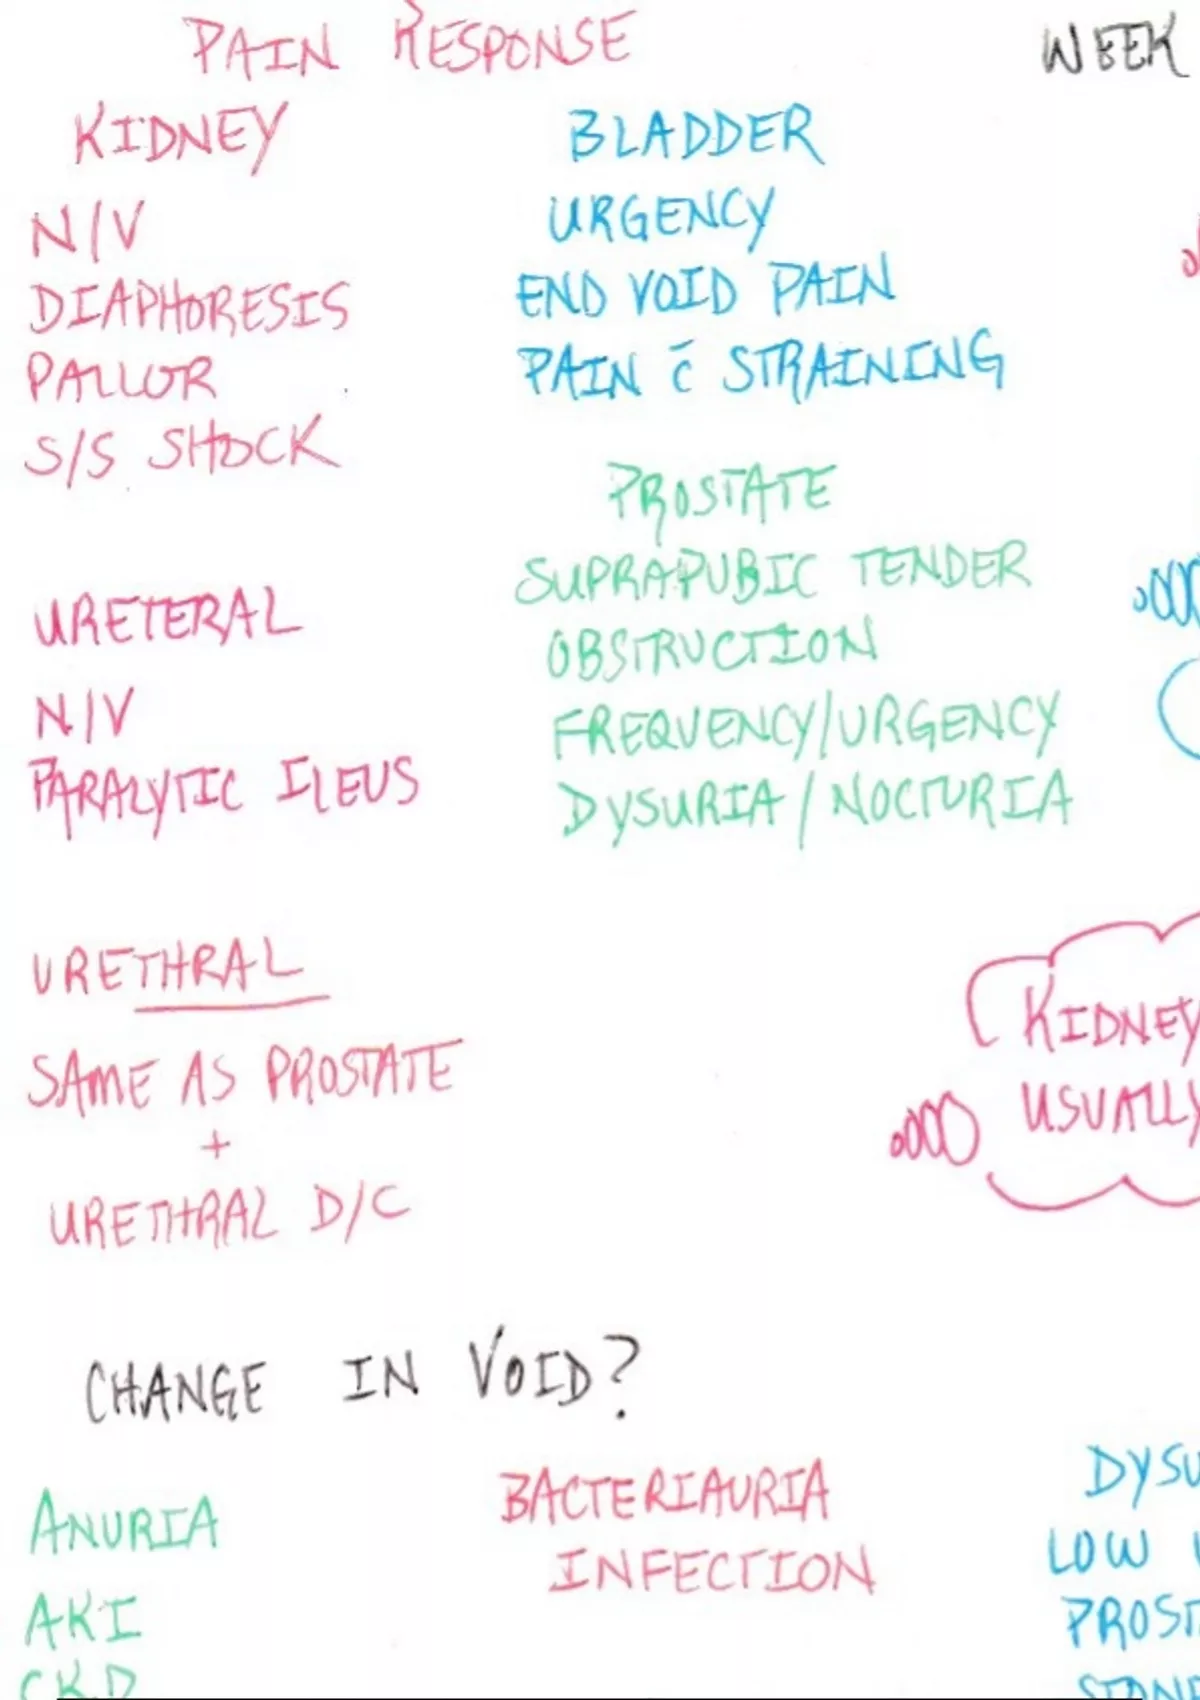 PAIN RESPONSE
WEEK
KIDNEY
N/V
DIAPHORESIS
PALLOR
S/S SHOCK
BLADDER
URGENCY
END VOID PAIN
PAIN c̄ STRAINING
PROSTATE
SUPRAPUBIC TENDER
OBSTRUCTION
FREQUENCY/URGENCY
DYSURIA/NOCTURIA
URETERAL
N/V
PARALYTIC ILEUS
URETHRAL
SAME AS PROSTATE
+
URETHRAL D/C
KIDNEY
USUALLY
CHANGE IN VOID?
ANURIA
AKI
CKD
BACTERIAURIA
INFECTION
DYSU
LOW
PROST